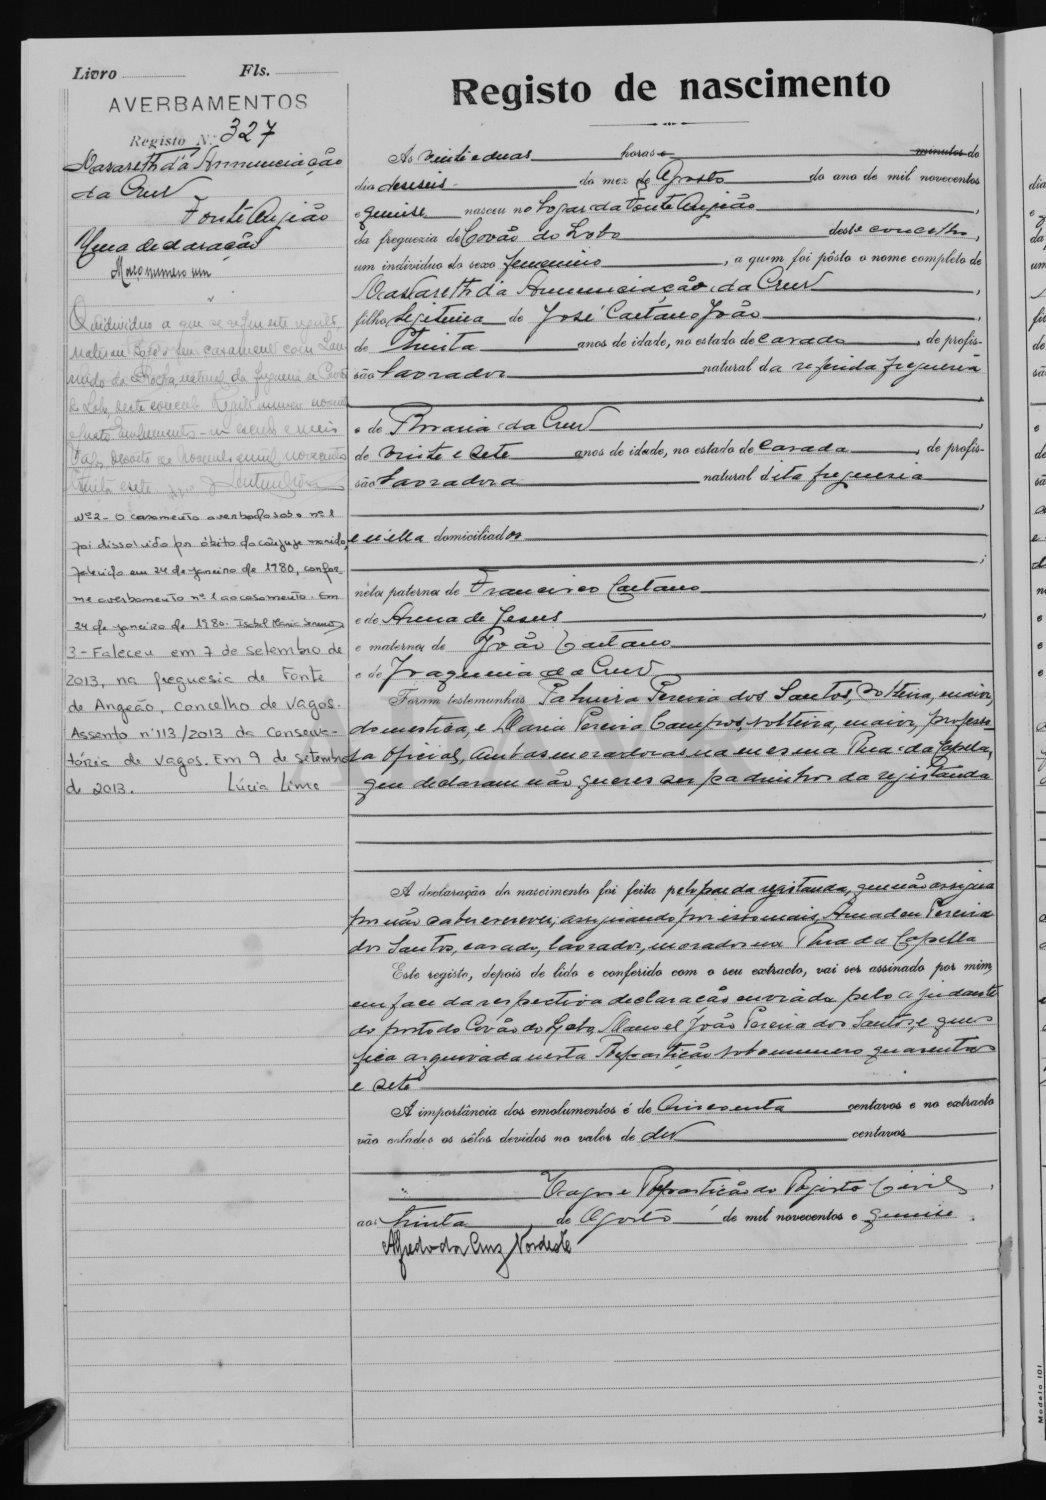 Livro Fls.
AVERBAMENTOS
Registo N.º 327
Nazareth d'a Annunciação
da Cruz
Fonte Angião
Uma declaração
Maço numero um
O individuo a que se refere este registo,
casamento com
da Rocha, natural da freguesia de Covão
do Lobo, deste concelho. Registo numero
e seis
mil novecentos
trinta e sete
Nº 2 - O casamento averbado sob o nº 1
foi dissolvido por óbito do cônjuge marido,
falecido em 24 de janeiro de 1980, confor-
me averbamento nº 1 ao casamento. Em
24 de janeiro de 1980. Isabel Maria
3 - Faleceu em 7 de setembro de
2013, na freguesia de Fonte
de Angeão, concelho de Vagos.
Assento nº 113/2013 da Conserva-
tória de Vagos. Em 9 de setembro
de 2013. Lúcia Lima
Registo de nascimento
Ás vinte e duas horas e minutos do
dia deseseis do mez de Agosto do ano de mil novecentos
e quinse nasceu no logar da Fonte Angião,
da freguezia de Covão do Lobo deste concelho,
um individuo do sexo femenino, a quem foi pôsto o nome completo de
Nazareth d'a Annunciação da Cruz,
filha legitima de José Caetano João,
de trinta anos de idade, no estado de casado, de profis-
são lavrador natural da referida freguesia
e de Maria da Cruz,
de vinte e sete anos de idade, no estado de casada, de profis-
são lavradora natural dita freguesia
e n'ella domiciliados
;
néta paterna de Francisco Caetano
e de Anna de Jesus,
e materna de João Caetano
e de Joaquina da Cruz.
Foram testemunhas Palmira Pereira dos Santos, solteira, maior,
domestica, e Maria Pereira Campos, solteira, maior, professo-
ra oficial, ambas moradoras na mesma Rua da Capella,
que declaram não querer ser padrinhos da registanda
A declaração do nascimento foi feita pelo pae da registanda, que não assigna
por não saber escrever; assignando por isso mais, Amadeu Pereira
dos Santos, casado, lavrador, morador na Rua da Capella
Este registo, depois de lido e conferido com o seu extracto, vai ser assinado por mim,
em face da respectiva declaração enviada pelo ajudante
do posto do Covão do Lobo, Manoel João Pereira dos Santos, e que
fica arquivada nesta Repartição sob numero quarenta
e sete
A importância dos emolumentos é de cincoenta centavos e no extracto
vão colados os sêlos devidos no valor de dez centavos
Vagos e Repartição do Registo Civil,
aos trinta de Agosto de mil novecentos e quinse.
Alfredo da Cruz Nordeste
Modelo 101